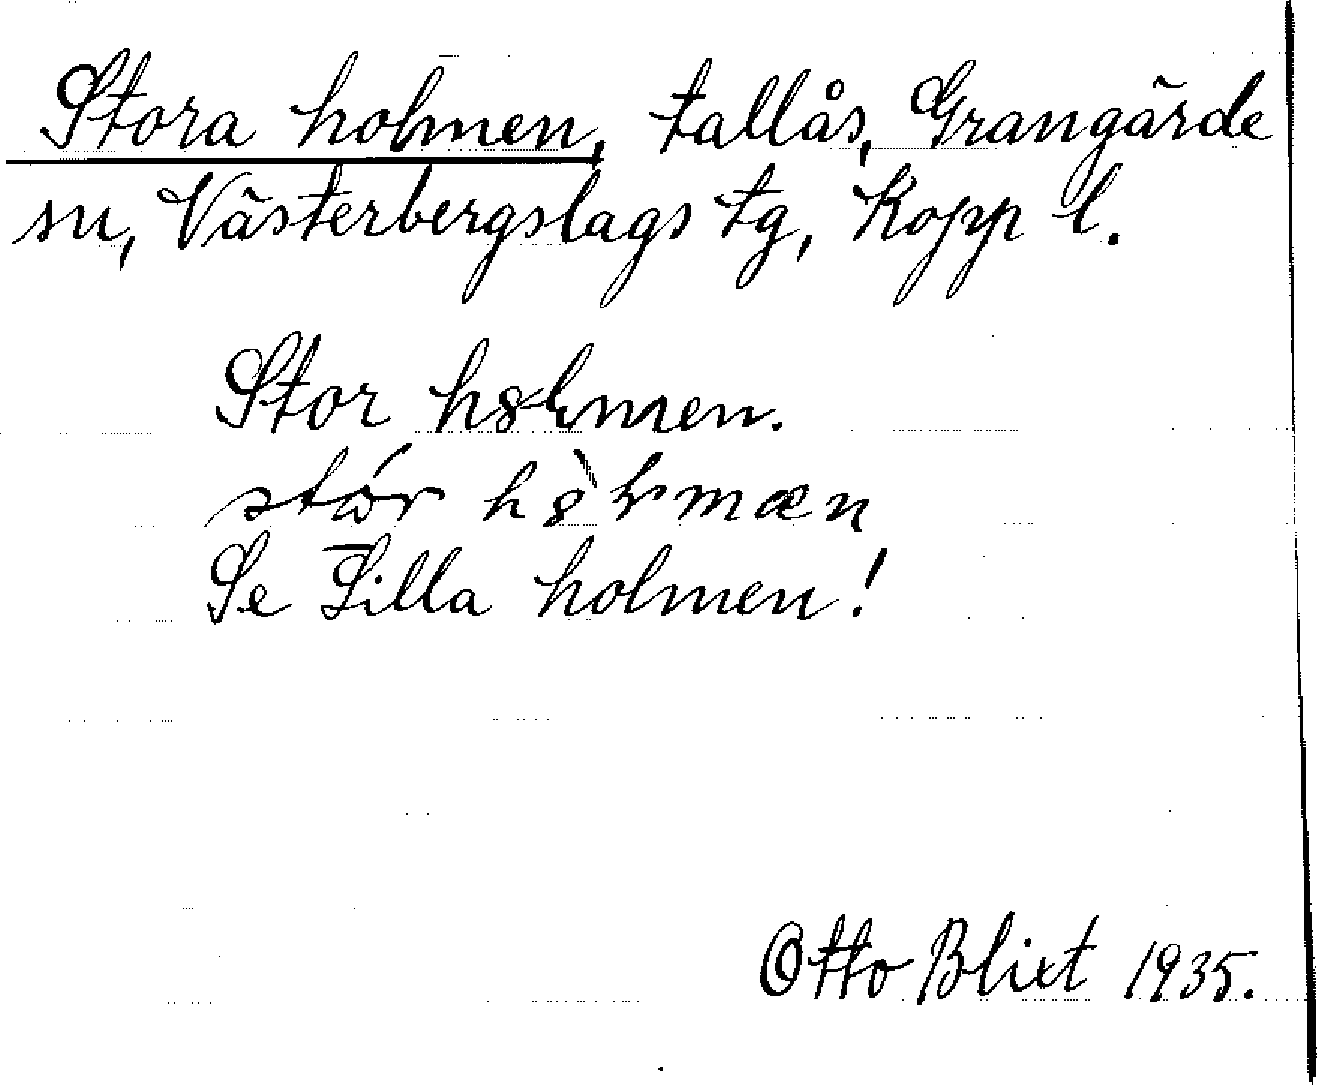 Stora holmen, Tallås, Grangärde
sn, Västerbergslags tg, Kopp l.
Stor hɞɬmen.
stór
Se Lilla holmen!
Otto Blixt 1935.